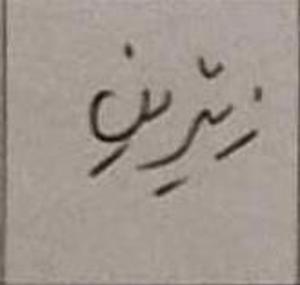 زیترین